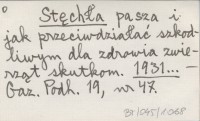 Stęchła pasza i
jak przeciwdziałać szkod-
liwym dla zdrowia zwie-
rząt skutkom. 1931... —
Gaz. Podh. 19, nr 47.
BJ/045/1068